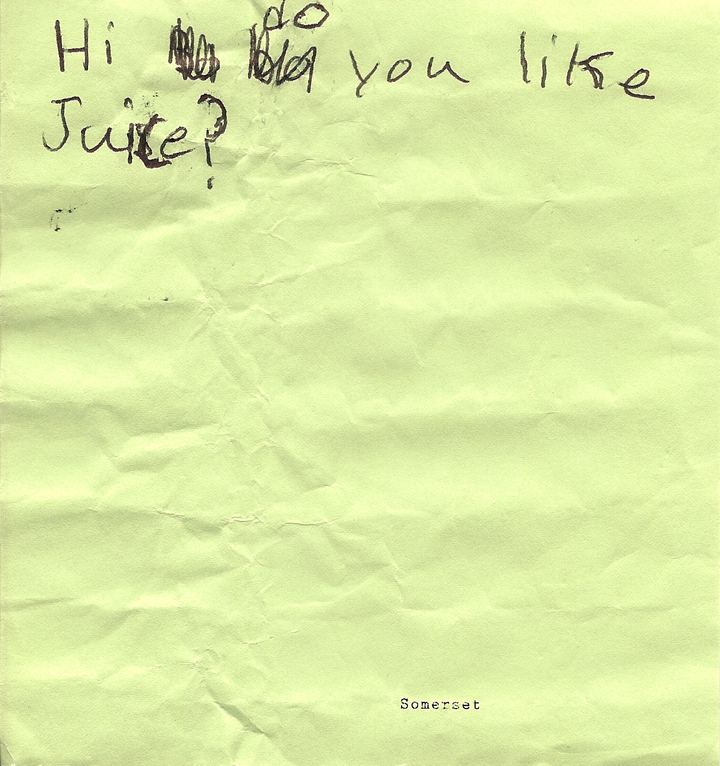 Hi do you like
Juice?
Somerset